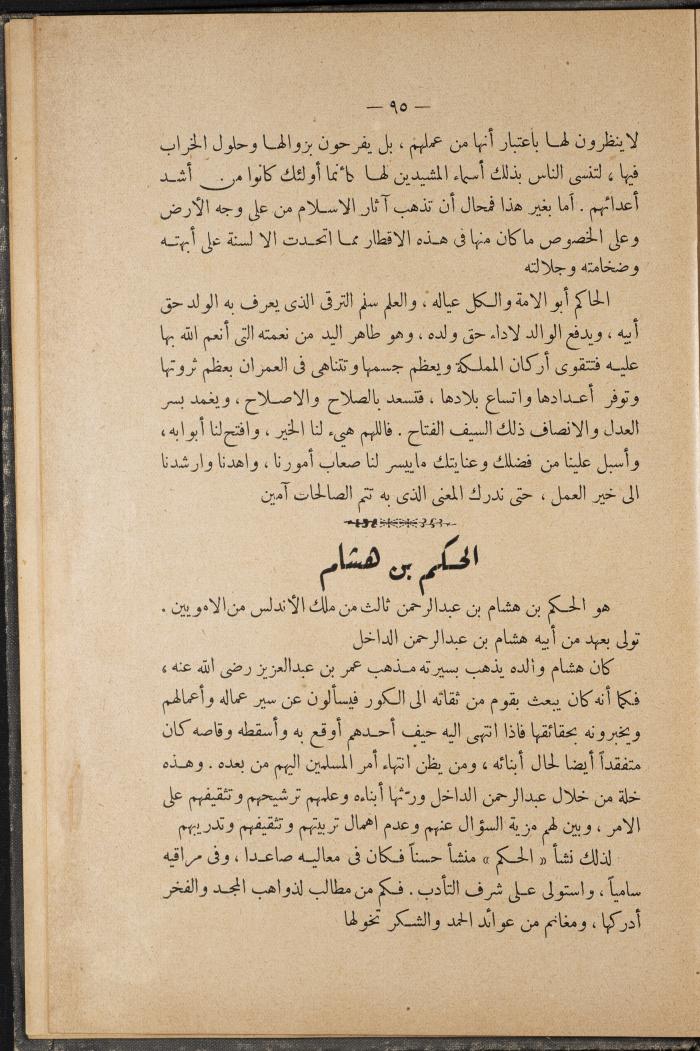 — ٩٥ —
لا ينظرون لها باعتبار أنها من عملهم ، بل يفرحون بزوالها وحلول الخراب
فيها ، لتنسى الناس بذلك أسماء المشيدين لها كأنما أولئك كانوا من أشد
أعدائهم . أما بغير هذا فمحال أن تذهب آثار الاسلام من على وجه الأرض
وعلى الخصوص ما كان منها فى هذه الاقطار مما اتحدت الا لسنة على أبهته
وضخامته وجلالته
الحاكم أبو الامة والكل عياله ، والعلم سلم الترقى الذى يعرف به الولد حق
أبيه ، ويدفع الوالد لاداء حق ولده ، وهو طاهر اليد من نعمته التى أنعم الله بها
عليه فتتقوى أركان المملكة ويعظم جسمها وتتناهى فى العمران بعظم ثروتها
وتوفر أعدادها واتساع بلادها ، فتسعد بالصلاح والاصلاح ، ويغمد بسر
العدل والانصاف ذلك السيف الفتاح . فاللهم هيء لنا الخير ، وافتح لنا أبوابه ،
وأسبل علينا من فضلك وعنايتك ماييسر لنا صعاب أمورنا ، واهدنا وارشدنا
الى خير العمل ، حتى ندرك المعنى الذى به تتم الصالحات آمين
الحكم بن هشام
هو الحكم بن هشام بن عبدالرحمن ثالث من ملك الأندلس من الامويين .
تولى بعهد من أبيه هشام بن عبدالرحمن الداخل
كان هشام والده يذهب بسيرته مذهب عمر بن عبدالعزيز رضى الله عنه ،
فكما أنه كان يبعث بقوم من ثقاته الى الكور فيسألون عن سير عماله وأعمالهم
ويخبرونه بحقائقها فاذا انتهى اليه حيف أحدهم أوقع به وأسقطه وقاصه كان
متفقداً أيضا لحال أبنائه ، ومن يظن انتهاء أمر المسلمين اليهم من بعده . وهذه
خلة من خلال عبدالرحمن الداخل ورّثها أبناءه وعلمهم ترشيحهم وتثقيفهم على
الامر ، وبين لهم مزية السؤال عنهم وعدم اهمال تربيتهم وتثقيفهم وتدريبهم
لذلك نشأ « الحكم » منشأ حسناً فكان فى معاليه صاعدا ، وفى مراقيه
سامياً ، واستولى على شرف التأدب . فكم من مطالب لذواهب المجد والفخر
أدركها ، ومغانم من عوائد الحمد والشكر تخولها